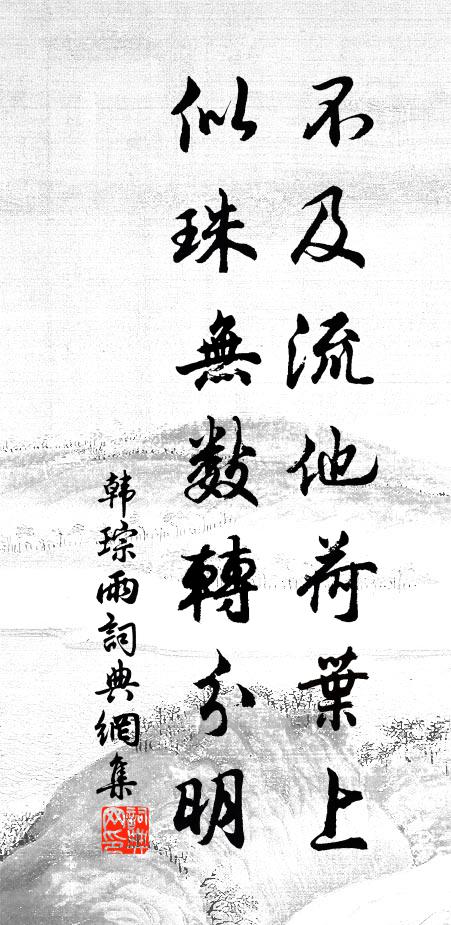 不及流他荷葉上
似珠無數轉分明
韩琮雨詞典網集